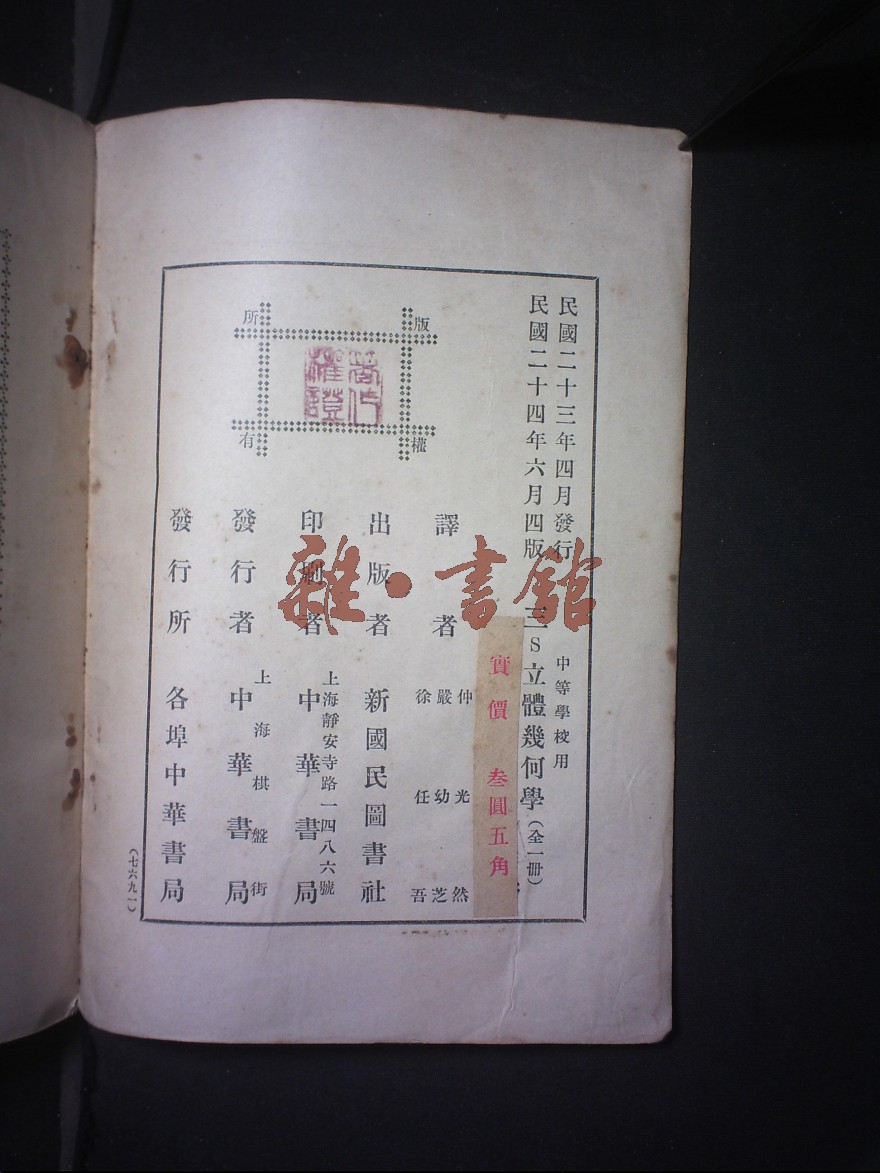 民國二十三年四月發行
民國二十四年六月四版
中等學校用
三S立體幾何學(全一冊)
實價 叁圓五角
譯者
仲光然
嚴幼芝
徐任吾
出版者 新國民圖書社
印刷者 中華書局
上海靜安寺路一四八六號
發行者 中華書局
上海棋盤街
發行所 各埠中華書局
版權所有
著作權證
(七六九一)
雜·書館